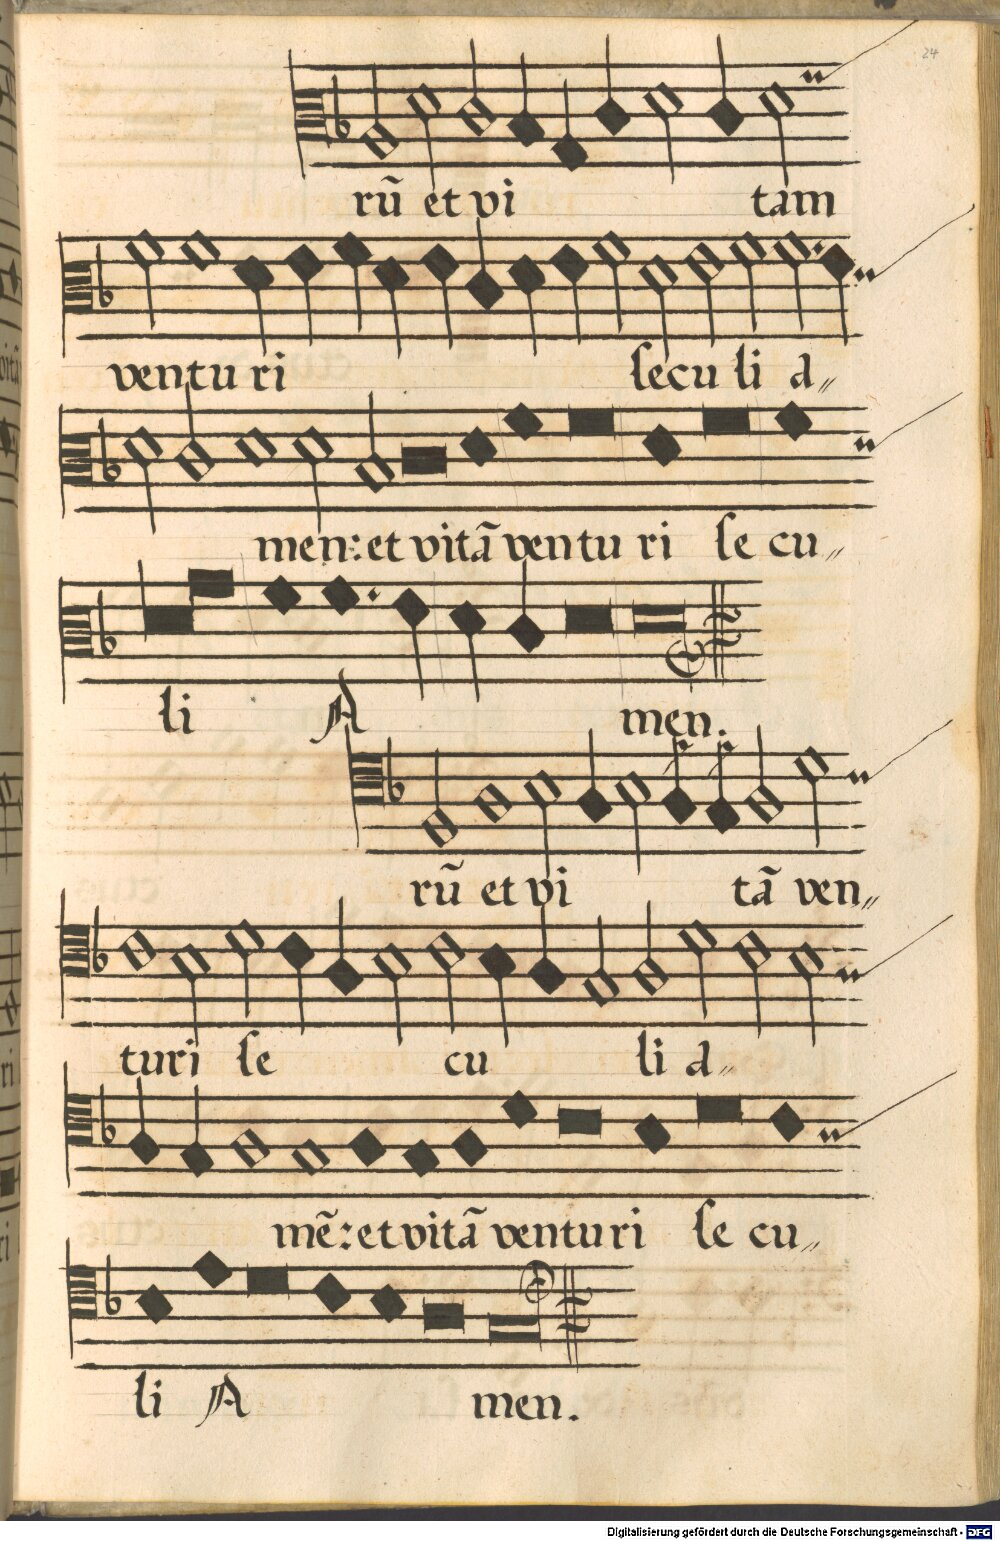 24
rū et vi tam
venturi seculi a〃
men: et vitā venturi secu〃
li Amen.
rū et vi tā ven〃
turi seculi a〃
mē: et vitā venturi secu〃
li Amen.
Digitalisierung gefördert durch die Deutsche Forschungsgemeinschaft - DFG